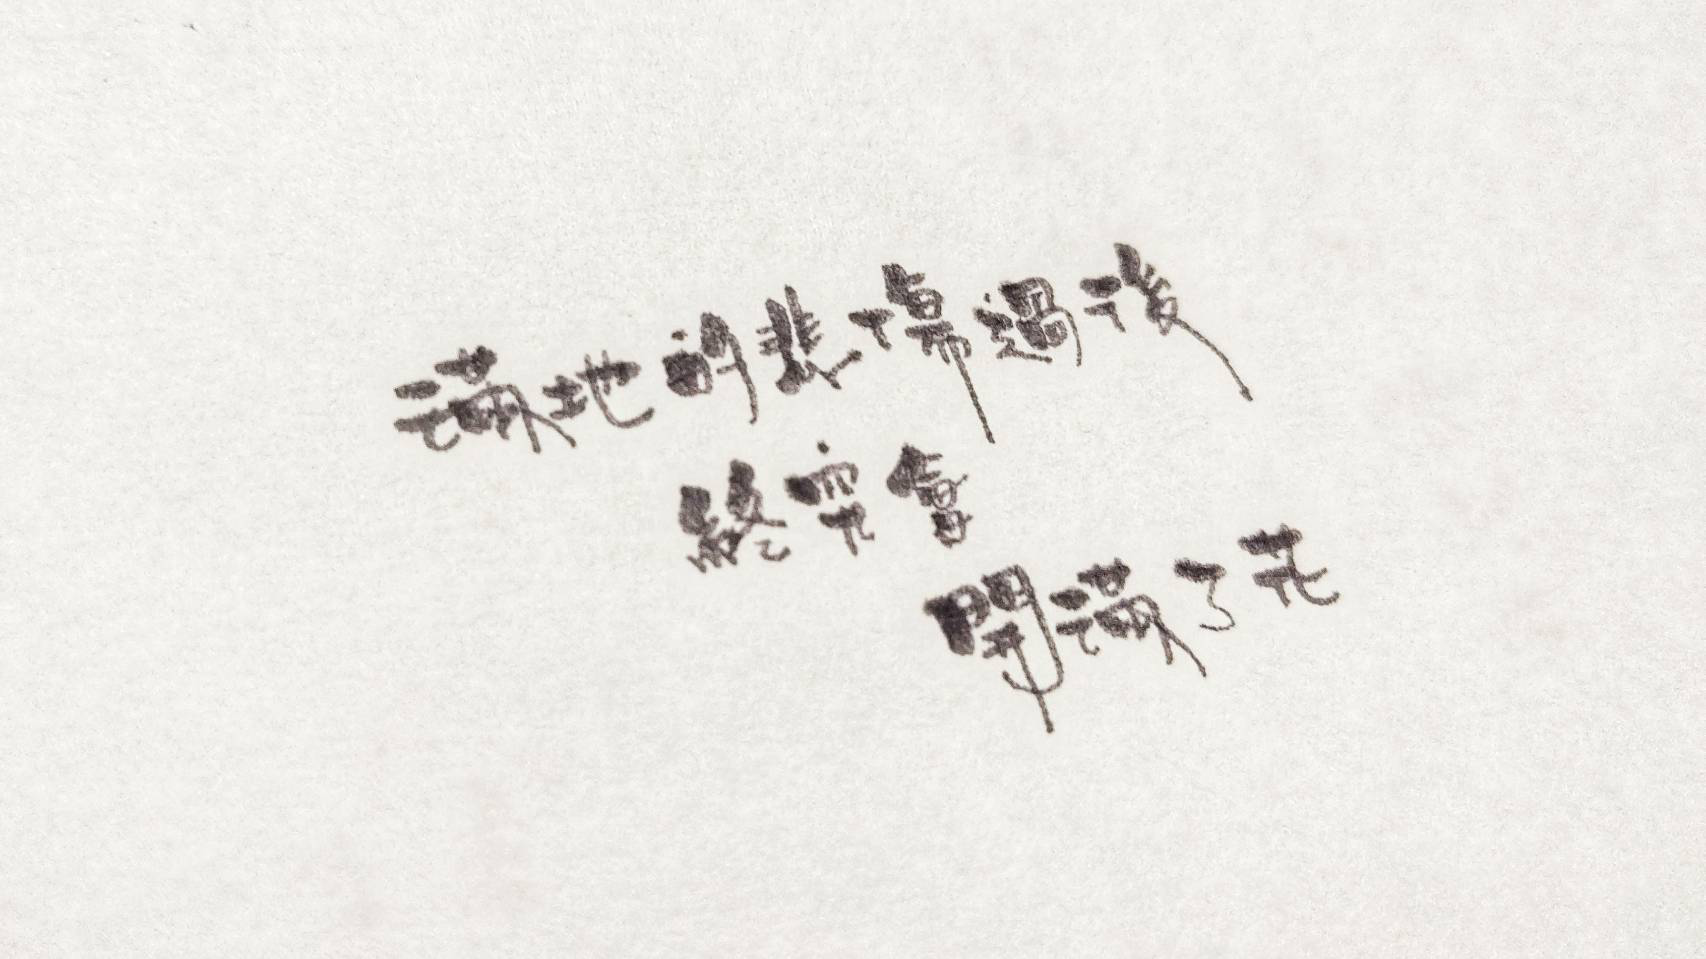 滿地的悲傷過後
終究會
開滿了花